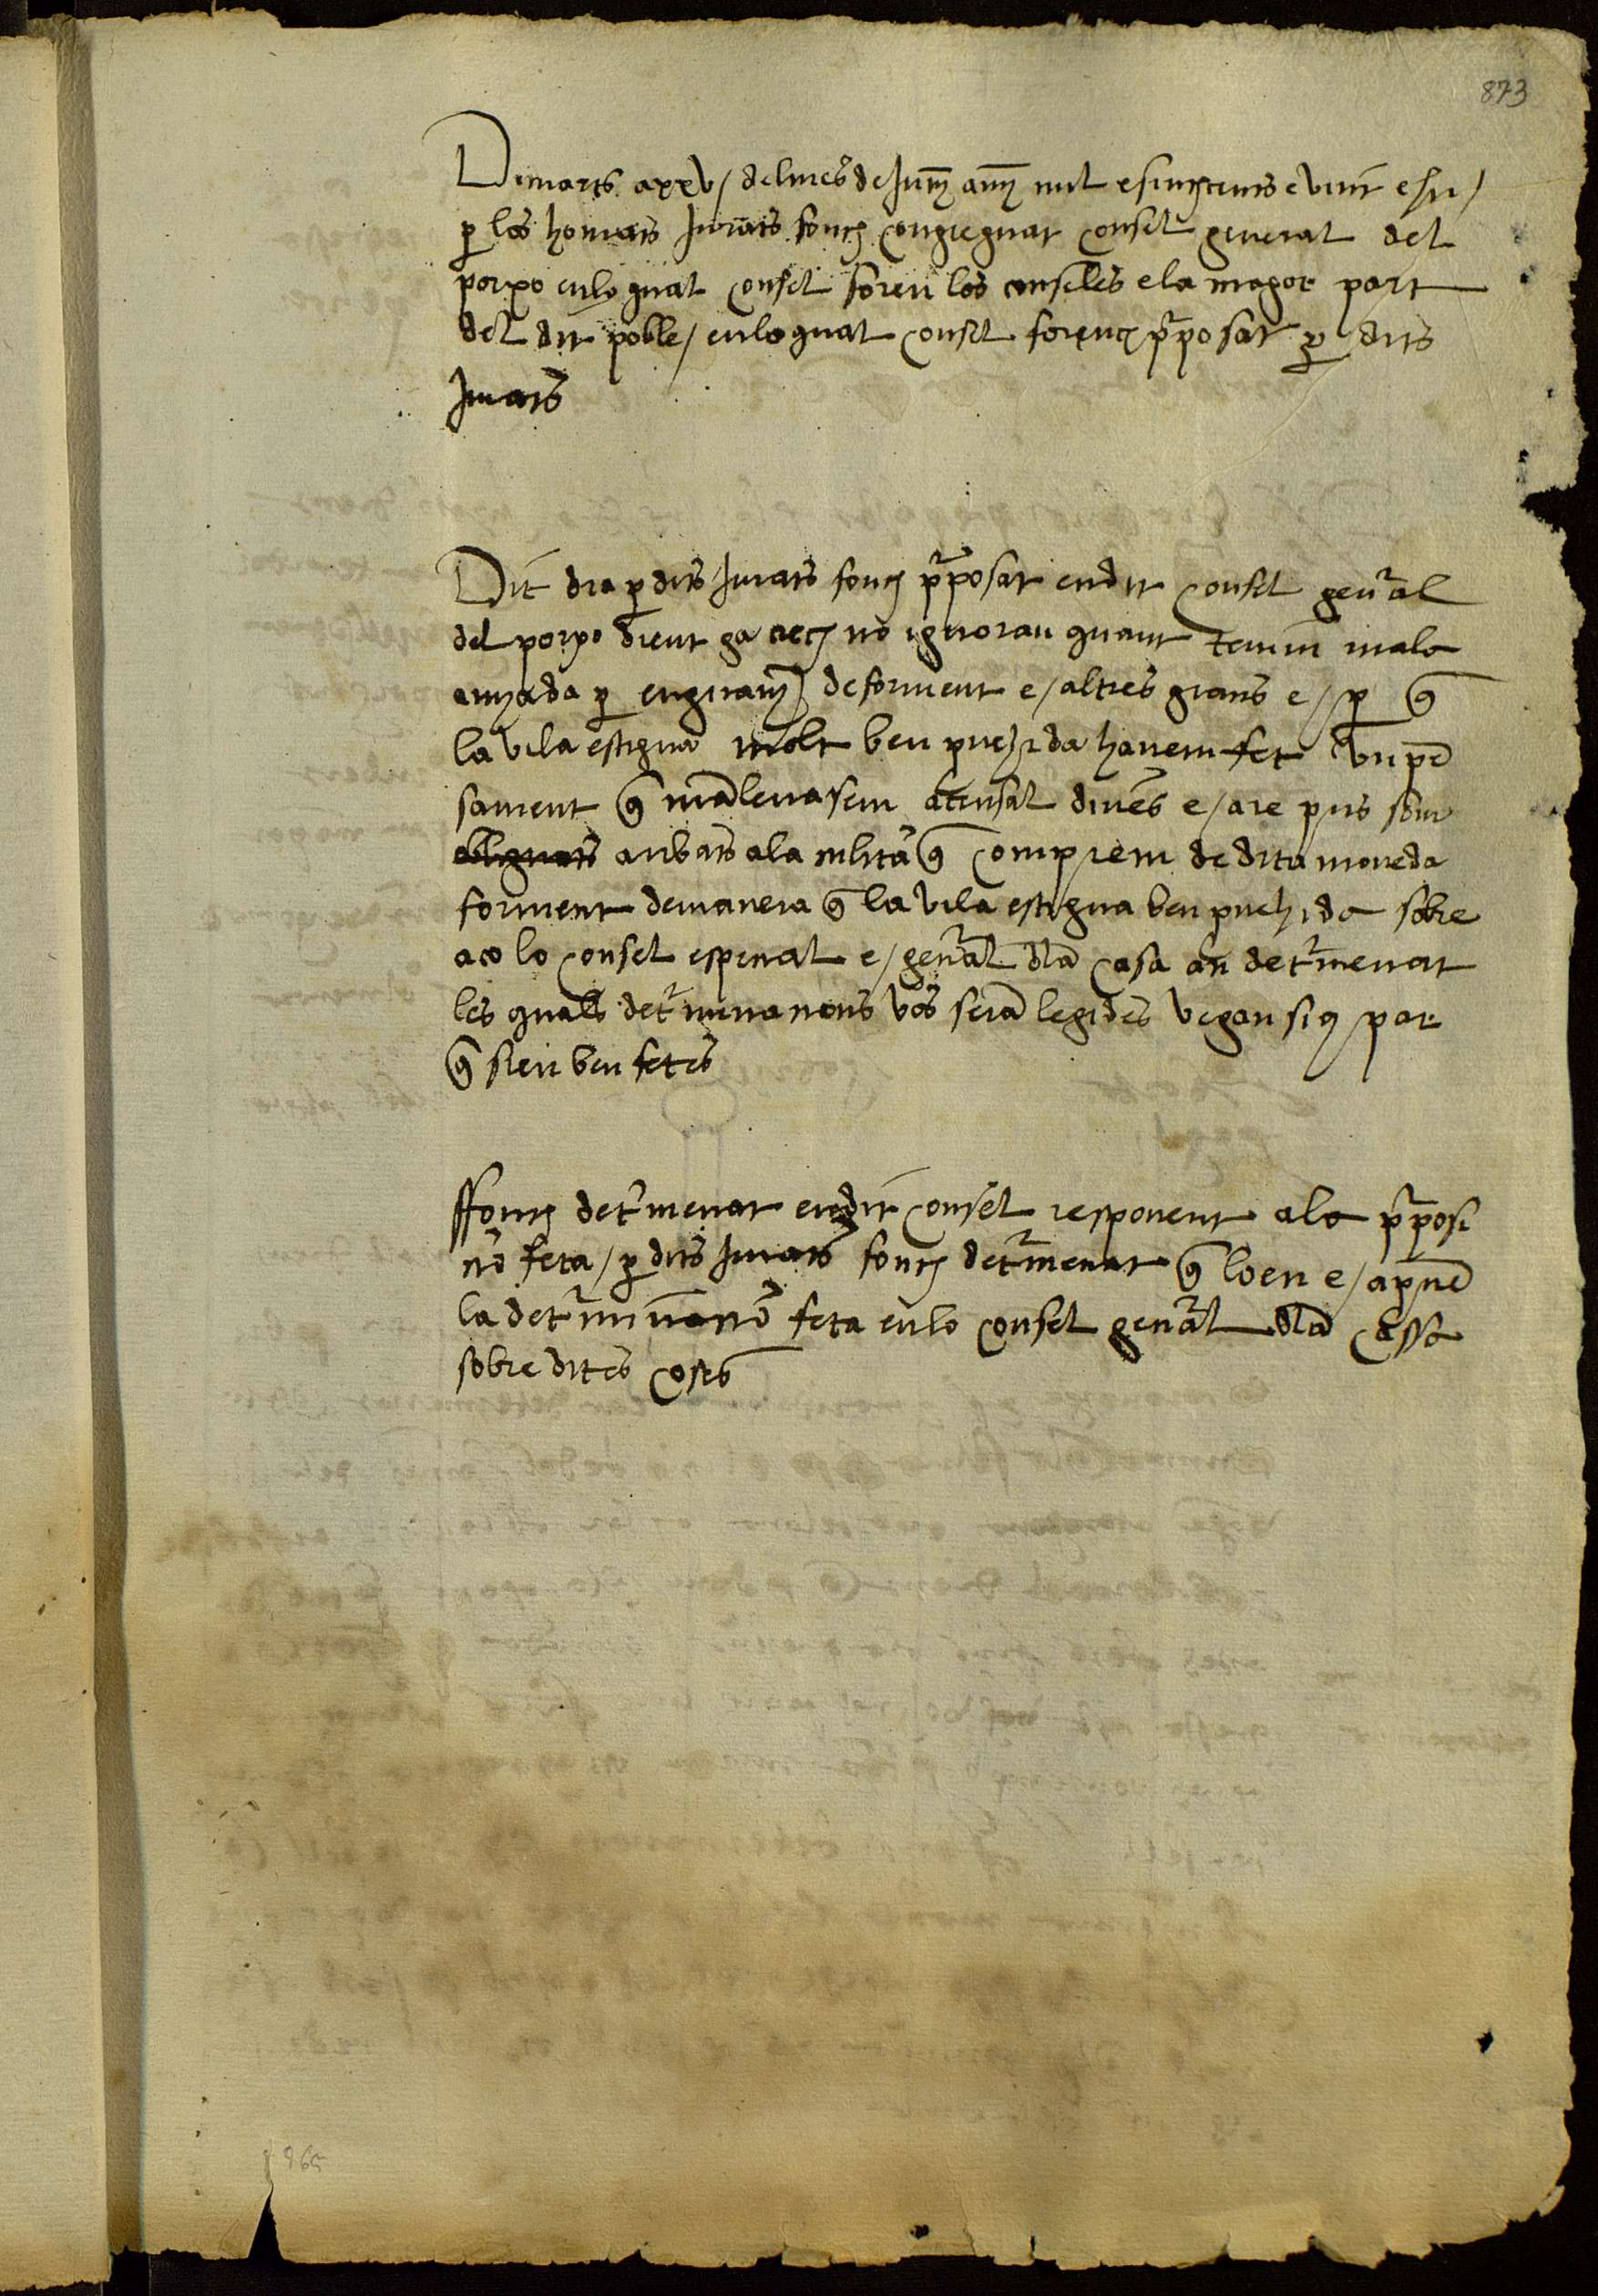 873
Dimarts a xxv / del mes de Juny any mil e sinchcents e vint e hu /
p los honrats Jurats fonch congreguat consel general del
porxo en lo qual consel foren los consellés e la magor part
del dit poble / en lo qual consel forench pposat p dits
Jurats
Dit dia p dits Jurats fonch pposat en dit consel genal
del porxo dient ga vech no ignoran quant tenim mala
anyada p enguany de forment e / altres grans e / p q
la vila estigua molt ben puehida havem fet vn pē
sament q māleuasem a censal dinés e / are pus som
obliguats aribats ala vlitā q comprem de dita moneda
forment de manera q la vila estigua ben puehida sobre
aco lo consel esperial e / genal dla casa an detmenat
les quals detminacions vos serā legides vegan siq par
q sien ben fetes
ffonch detmenat en dit consel responent a la pposi
ciō feta / p dits Jurats fonch detmenat q loen e / apnē
la detminaciō feta en lo consel genal dla cassa
sobre dites coses
865